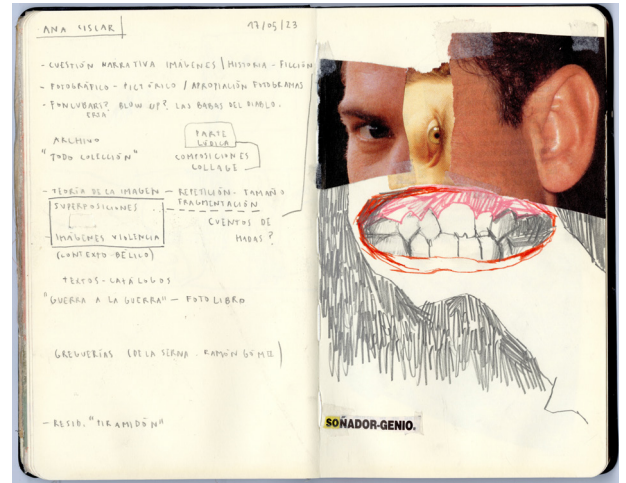 ANA CISCAR
17/05/23
- CUESTIÓN NARRATIVA IMÁGENES | HISTORIA - FICCIÓN
- FOTOGRÁFICO - PICTÓRICO / APROPIACIÓN FOTOGRAMAS
BLOW UP? LAS BABAS DEL DIABLO.
ARCHIVO
"TODO COLECCIÓN"
PARTE
LÚDICA
COMPOSICIONES
COLLAGE
- TEORÍA DE LA IMAGEN - REPETICIÓN - TAMAÑO
FRAGMENTACIÓN
SUPERPOSICIONES
CUENTOS DE
HADAS?
- IMÁGENES VIOLENCIA
(CONTEXTO BÉLICO)
TEXTOS - CATÁLOGOS
"GUERRA A LA GUERRA" - FOTOLIBRO
GREGUERÍAS (DE LA SERNA. RAMÓN GÓMEZ)
- RESID. "PIRAMIDÓN"
SOÑADOR-GENIO.